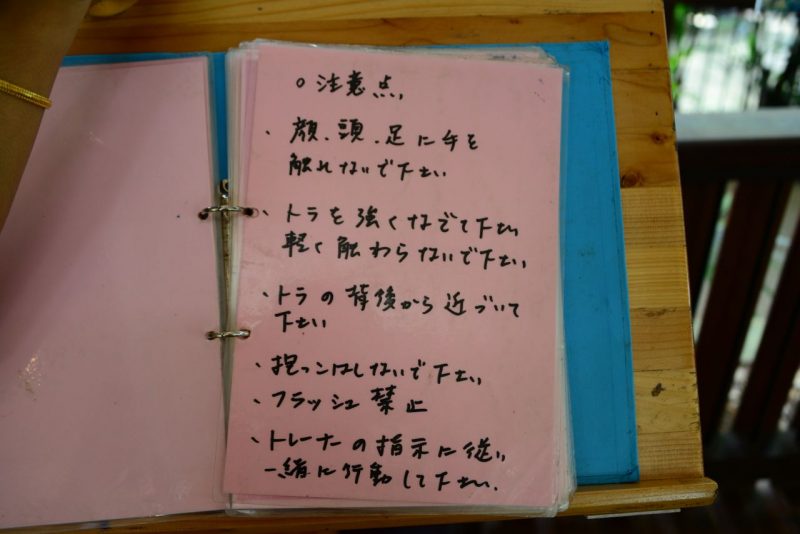 ○注意点、
・顔、頭、足に手を
触れないで下さい
・トラを強くなでて下さい
軽く触わらないで下さい
・トラの背後から近づいて
下さい
・抱っこはしないで下さい
・フラッシュ禁止
・トレーナーの指示に従い
一緒に行動して下さい.